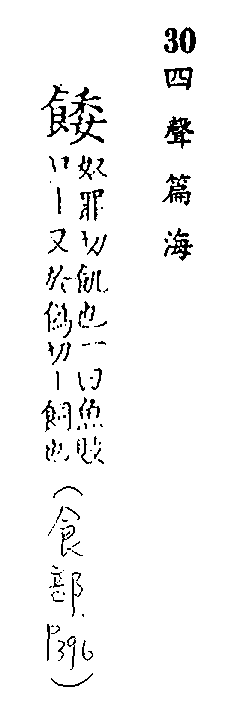 30 四聲篇海
餧
奴罪切飢也一曰魚敗
曰丨又於僞切丨飼也
(食部.P396)